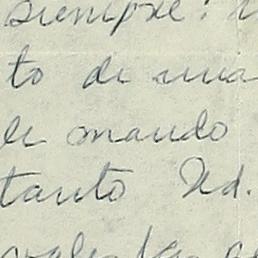 siempre:
to de una
le mando
tanto Ud.